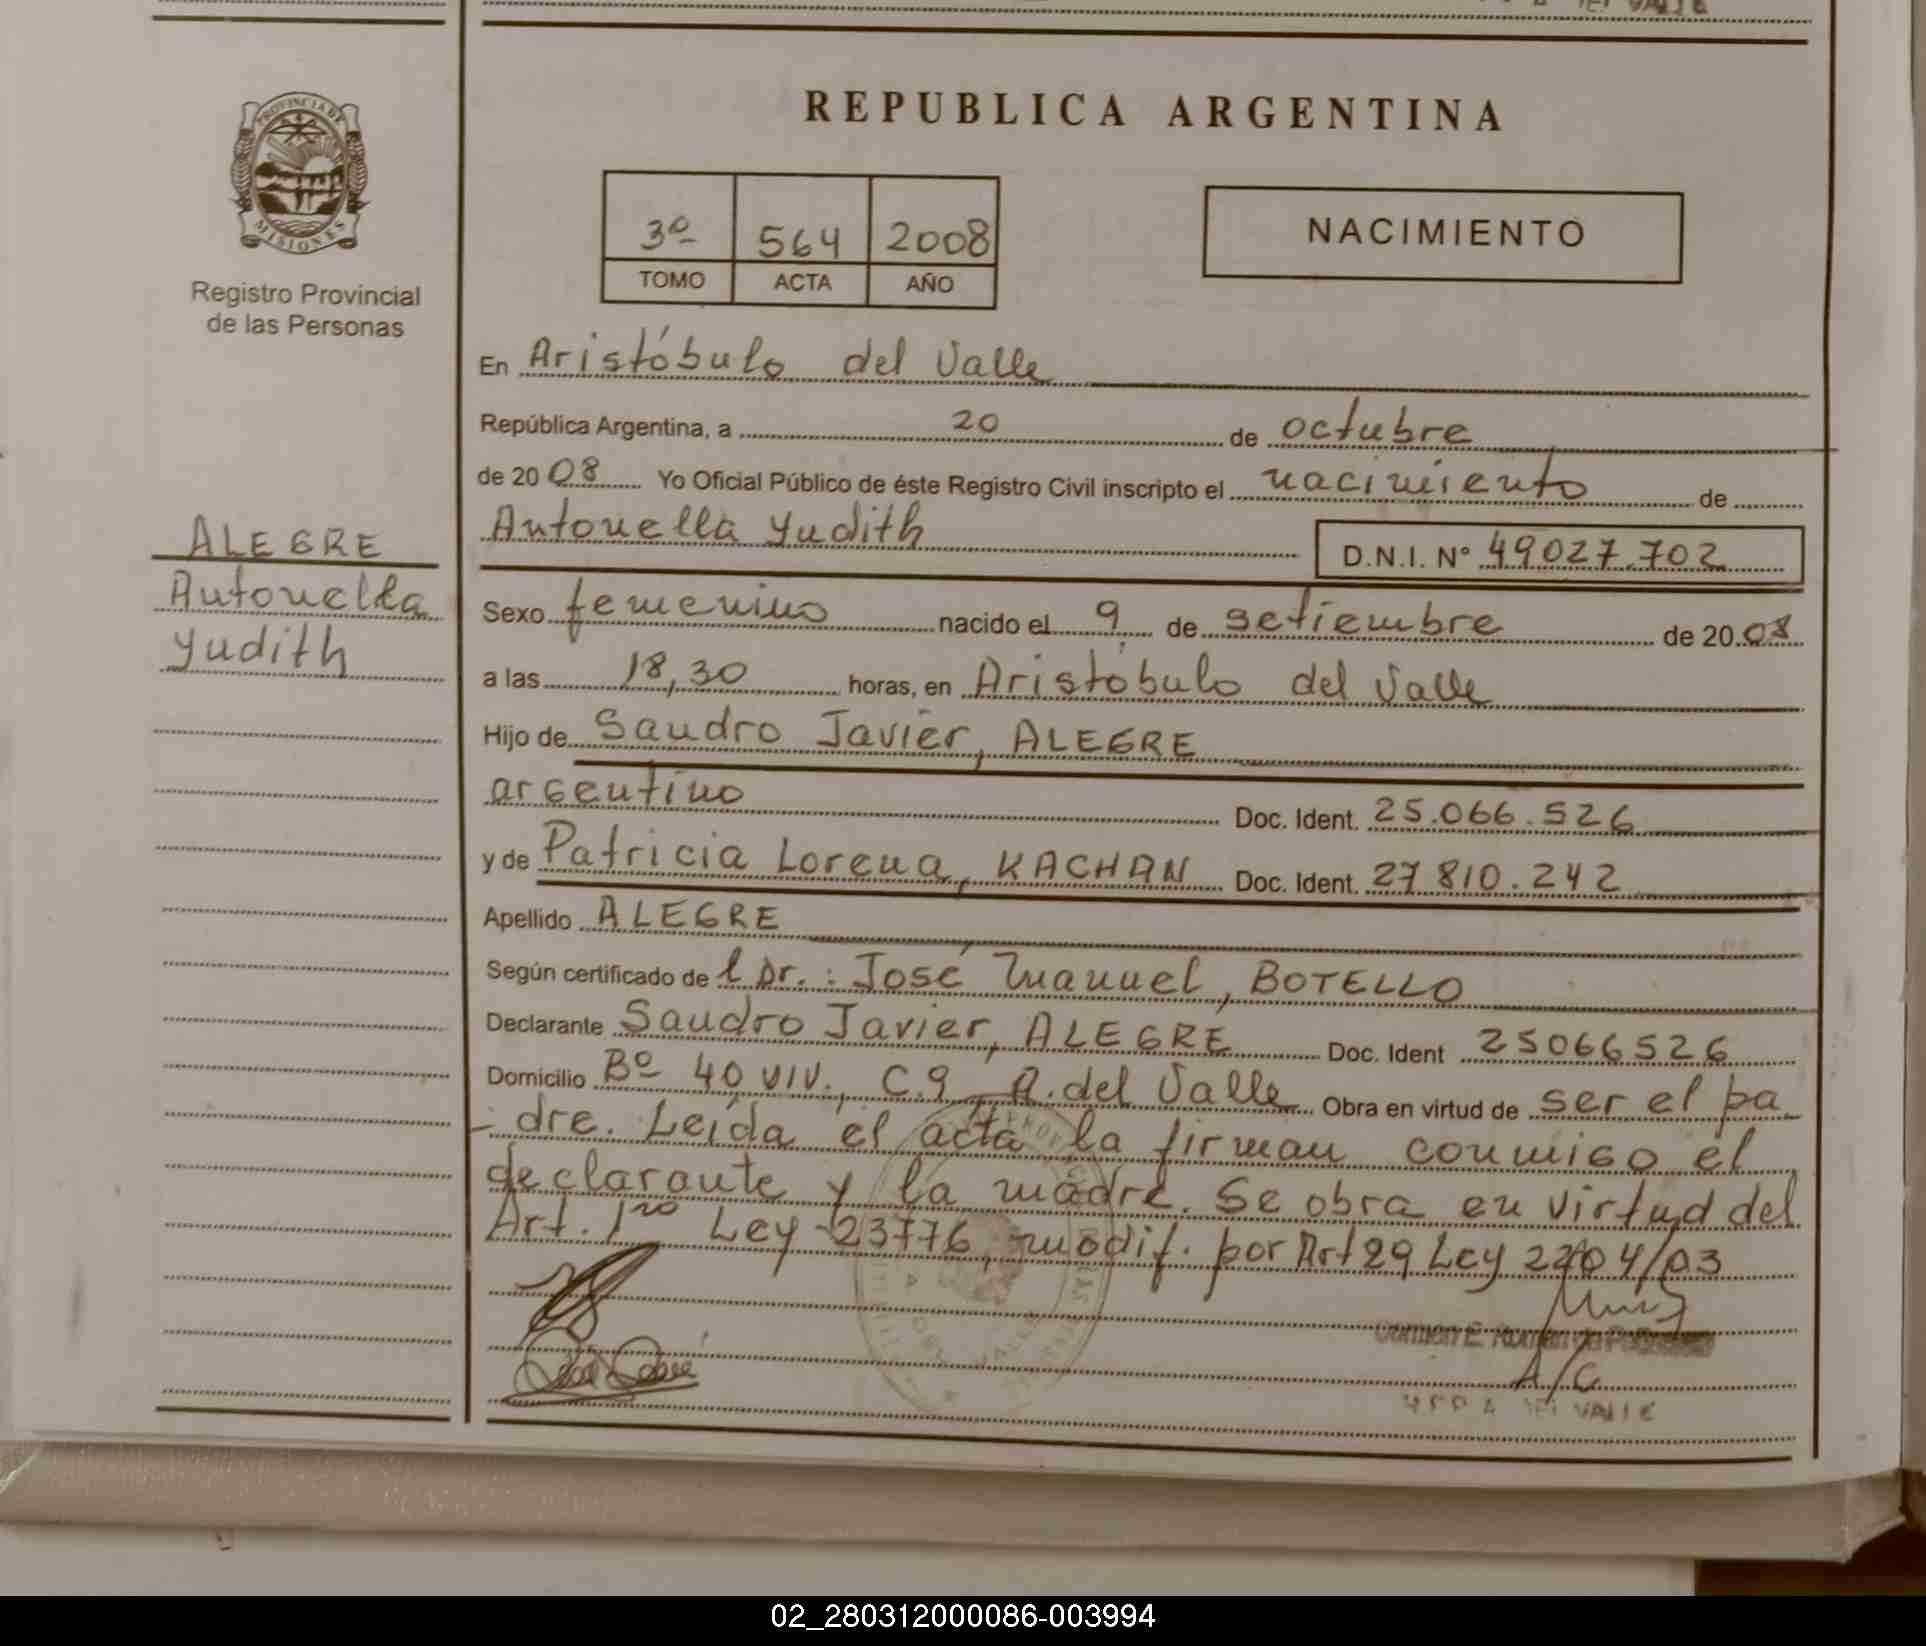 REPUBLICA ARGENTINA
PROVINCIA DE
MISIONES
Registro Provincial
de las Personas
3º 564 2008
TOMO ACTA AÑO
NACIMIENTO
ALEGRE
Antonella
Yudith
En Aristóbulo del Valle
República Argentina, a 20 de octubre
de 20 08 Yo Oficial Público de éste Registro Civil inscripto el nacimiento de
Antonella Yudith D.N.I. Nº 49027.702
Sexo femenino nacido el 9 de setiembre de 20 08
a las 18,30 horas, en Aristóbulo del Valle
Hijo de Sandro Javier, ALEGRE
argentino Doc. Ident. 25.066.526
y de Patricia Lorena, KACHAN Doc. Ident. 27810.242
Apellido ALEGRE
Según certificado de l Dr.: José Manuel, BOTELLO
Declarante Sandro Javier, ALEGRE Doc. Ident 25066526
Domicilio Bº 40 VIV., C.9 A. del Valle Obra en virtud de ser el pa
- dre. Leída el acta la firman conmigo el
declarante y la madre. Se obra en virtud del
Art. 1ro Ley 23776, modif. por Art 29 Ley 2204/03
A/C
VALLE
02_280312000086-003994